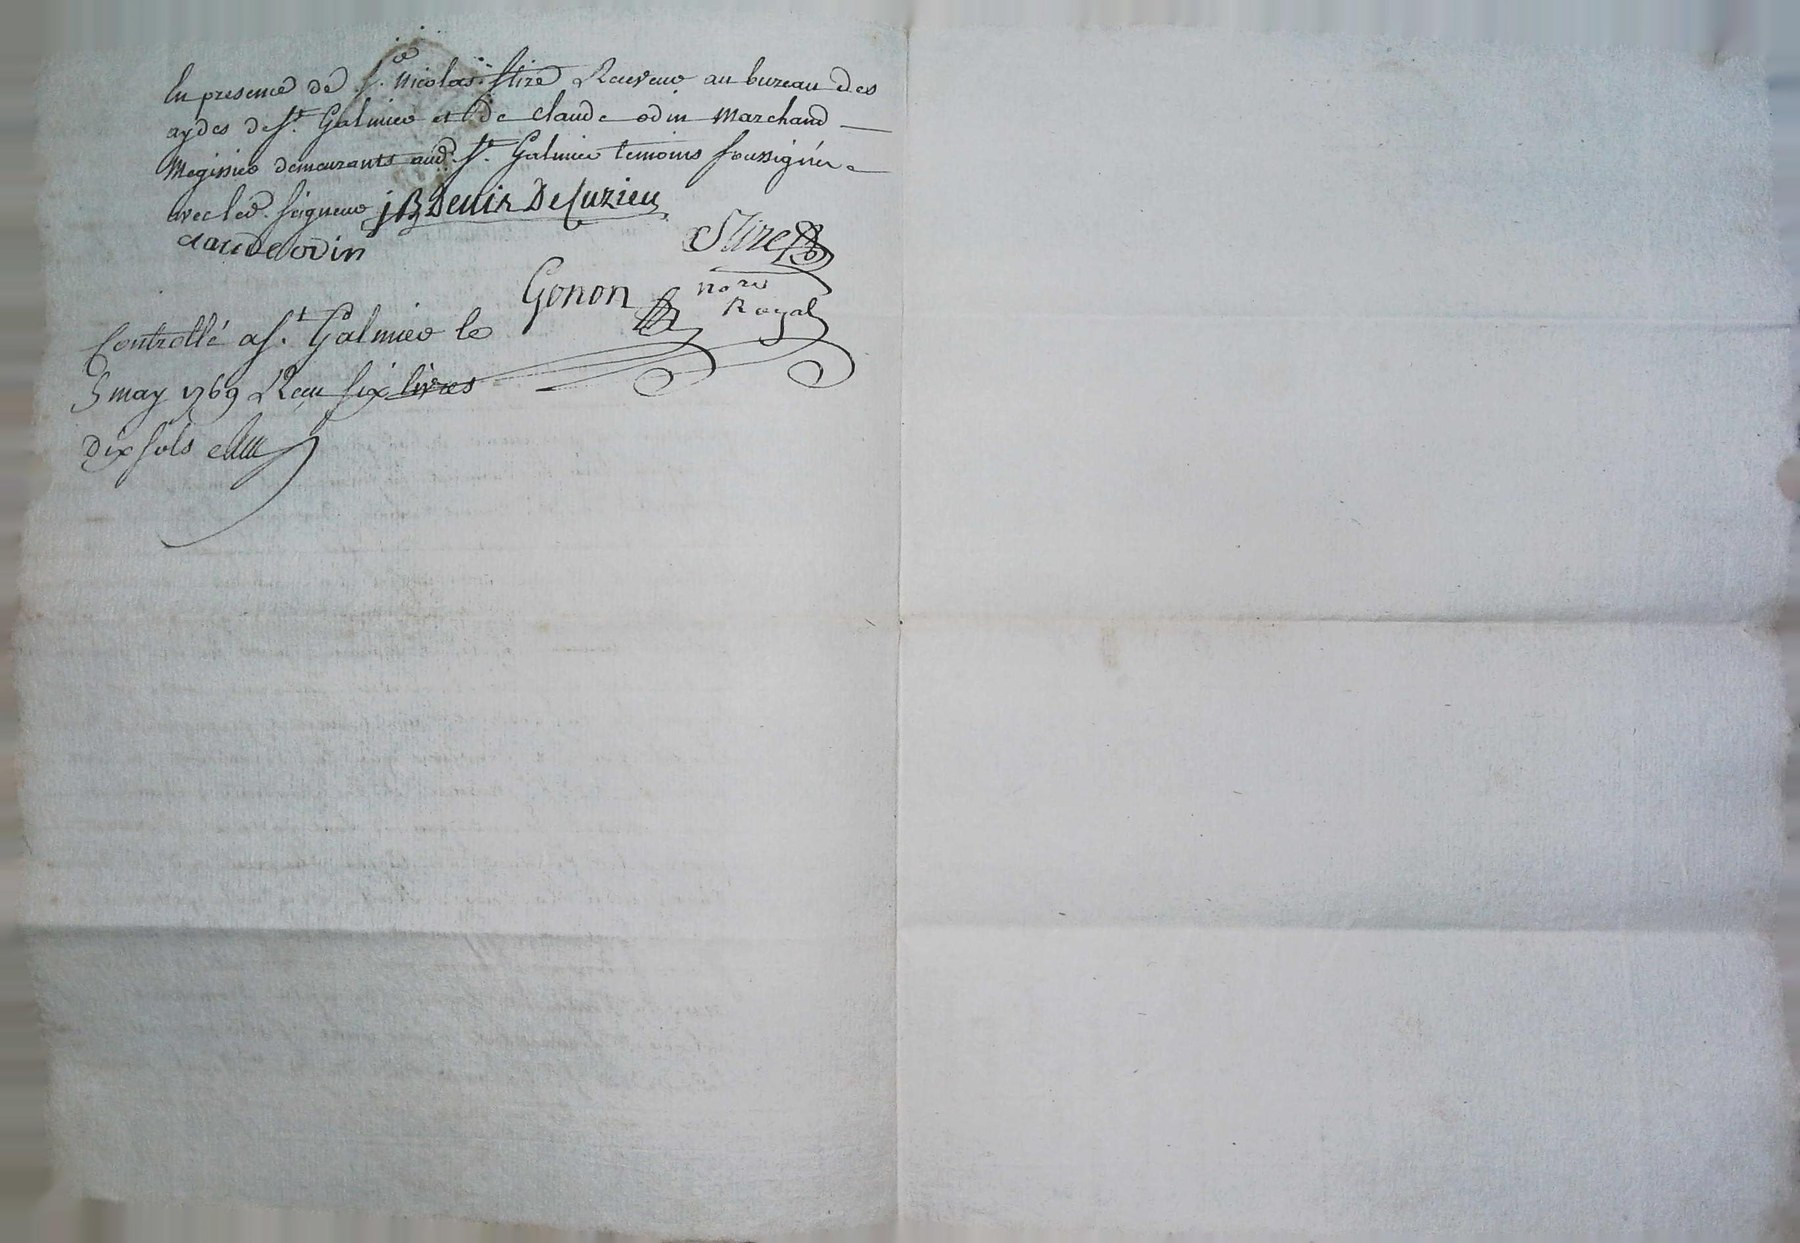 En presence de S.r Nicolas Stire Receveur au bureau des
aydes de St. Galmier et de claude odin Marchand
Megissier demeurants aud. St. Galmier temoins soussignés
avec led. seigneur j B Denis De Cuzieu
claude odin
Stire
Gonon no.re
Royal
Controllé a St. Galmier le
5 may 1769 Receu six livres
dix sols